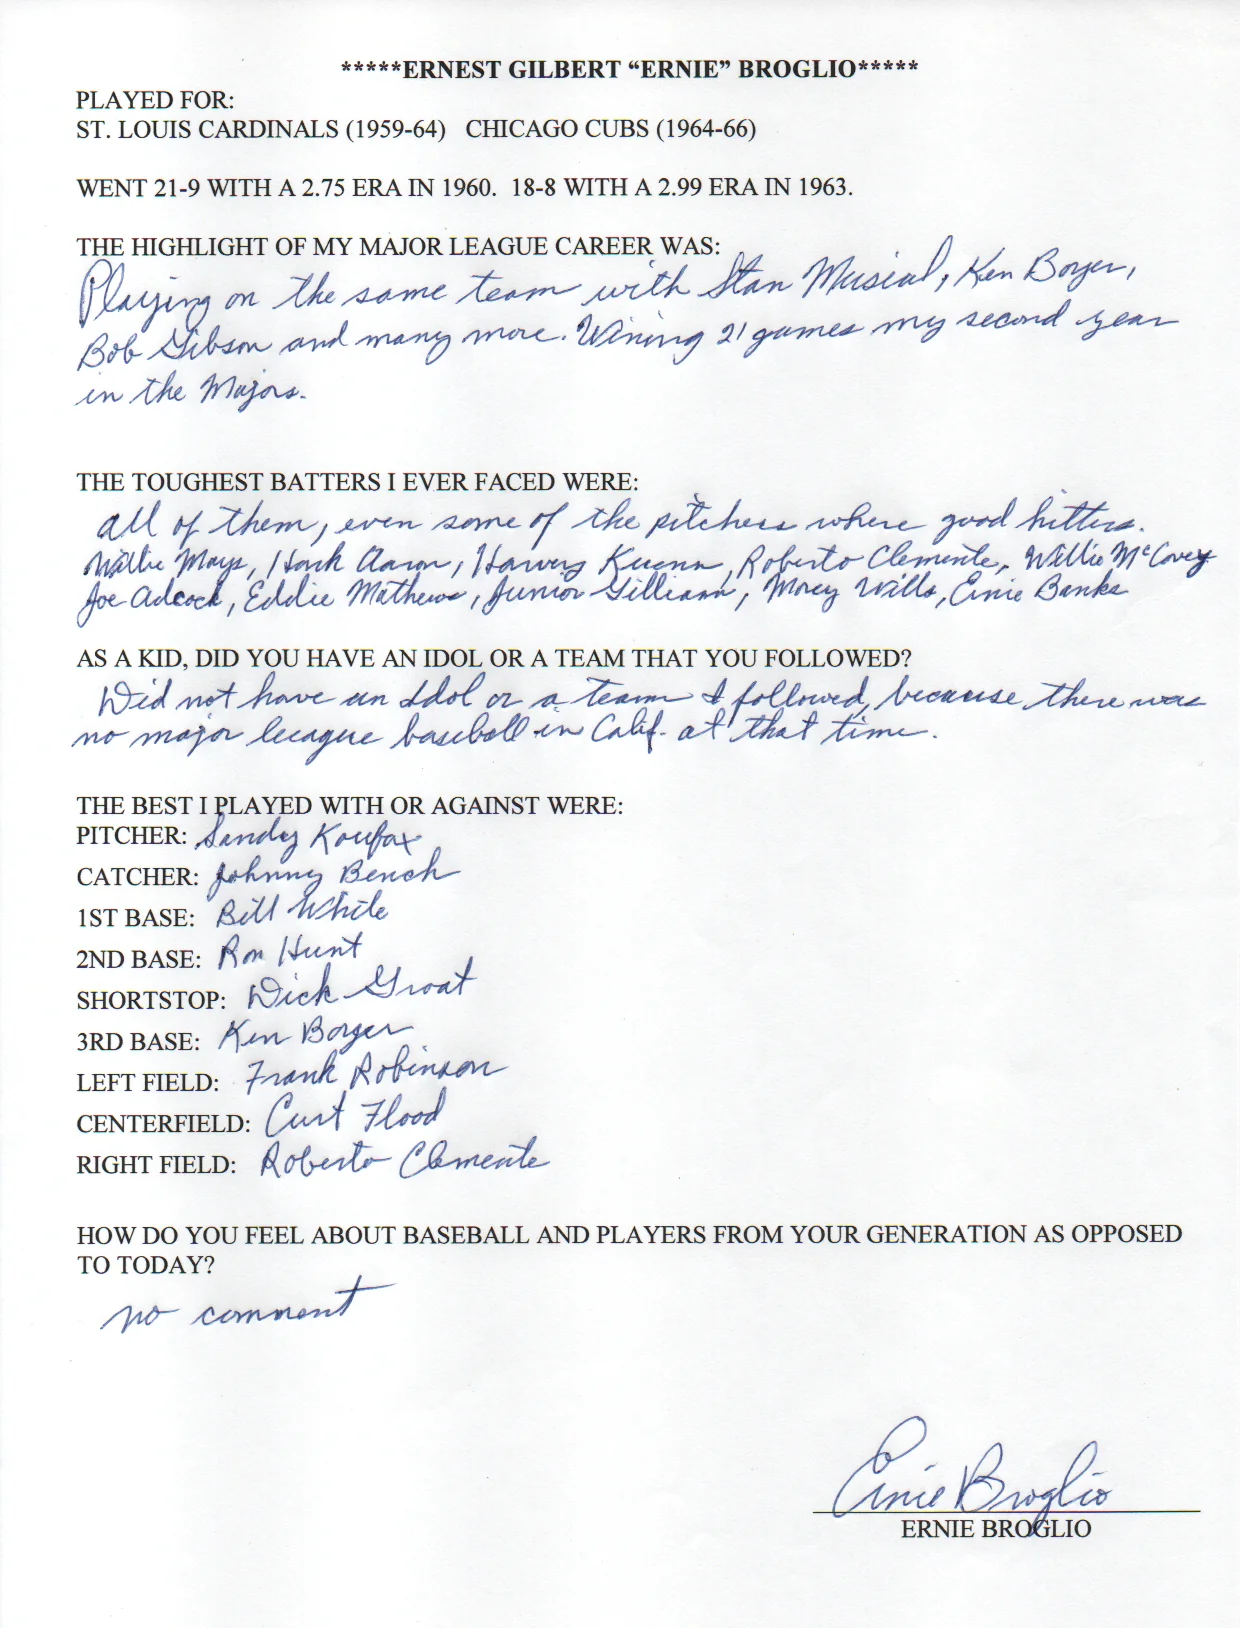 *****ERNEST GILBERT “ERNIE” BROGLIO*****
PLAYED FOR:
ST. LOUIS CARDINALS (1959-64)   CHICAGO CUBS (1964-66)
WENT 21-9 WITH A 2.75 ERA IN 1960.  18-8 WITH A 2.99 ERA IN 1963.
THE HIGHLIGHT OF MY MAJOR LEAGUE CAREER WAS:
Playing on the same team with Stan Musial, Ken Boyer,
Bob Gibson and many more. Wining 21 games my second year
in the Majors.
THE TOUGHEST BATTERS I EVER FACED WERE:
all of them, even some of the pitchers where good hitters.
Willie Mays, Hank Aaron, Harvey Kuenn, Roberto Clemente, Willie McCovey
Joe Adcock, Eddie Mathews, Junior Gilliam, Morey Wills, Ernie Banks
AS A KID, DID YOU HAVE AN IDOL OR A TEAM THAT YOU FOLLOWED?
Did not have an Idol or a team I followed, because there was
no major league baseball in Calif. at that time.
THE BEST I PLAYED WITH OR AGAINST WERE:
PITCHER: Sandy Koufax
CATCHER: Johnny Bench
1ST BASE: Bill White
2ND BASE: Ron Hunt
SHORTSTOP: Dick Groat
3RD BASE: Ken Boyer
LEFT FIELD: Frank Robinson
CENTERFIELD: Curt Flood
RIGHT FIELD: Roberto Clemente
HOW DO YOU FEEL ABOUT BASEBALL AND PLAYERS FROM YOUR GENERATION AS OPPOSED
TO TODAY?
no comment
Ernie Broglio
ERNIE BROGLIO